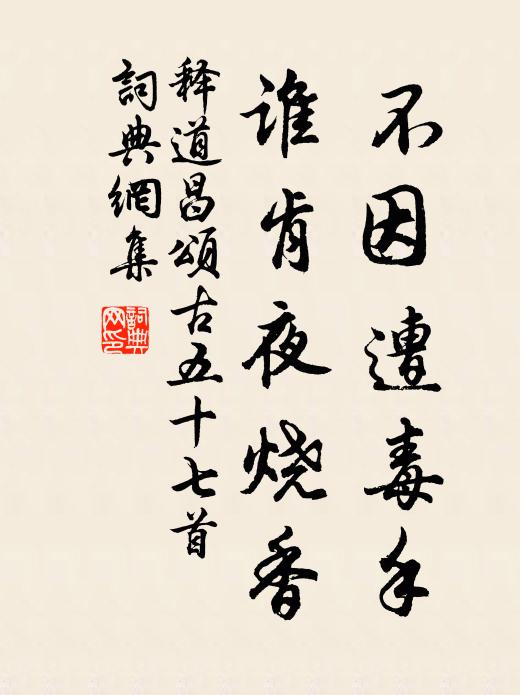 不因遭毒手
谁肯夜烧香
释道昌颂古五十七首
詞典網集
詞典网印